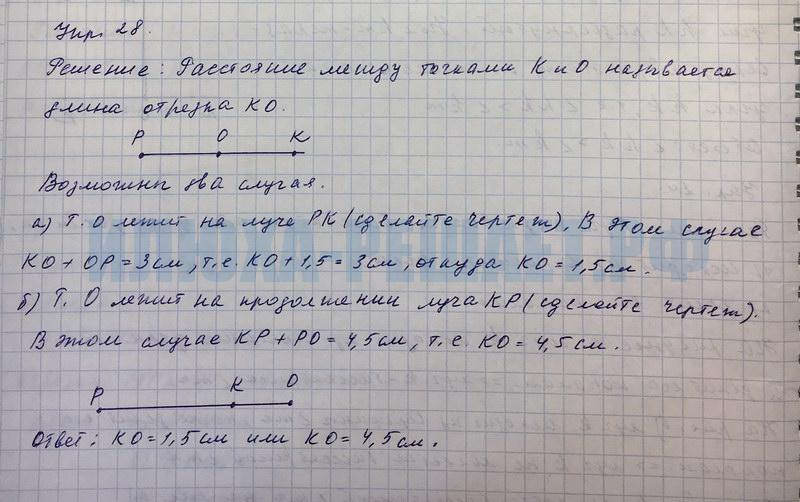 Упр. 28.
Решение: Расстояние между точками К и О называется
длина отрезка КО.
Р О К
Возможны два случая.
а) Т. О лежит на луче РК (сделайте чертеж). В этом случае
КО + ОР = 3 см, т.е. КО + 1,5 = 3 см, откуда КО = 1,5 см.
б) Т. О лежит на продолжении луча КР (сделайте чертеж).
В этом случае КР + РО = 4,5 см, т.е. КО = 4,5 см.
Р К О
Ответ: КО = 1,5 см или КО = 4,5 см.